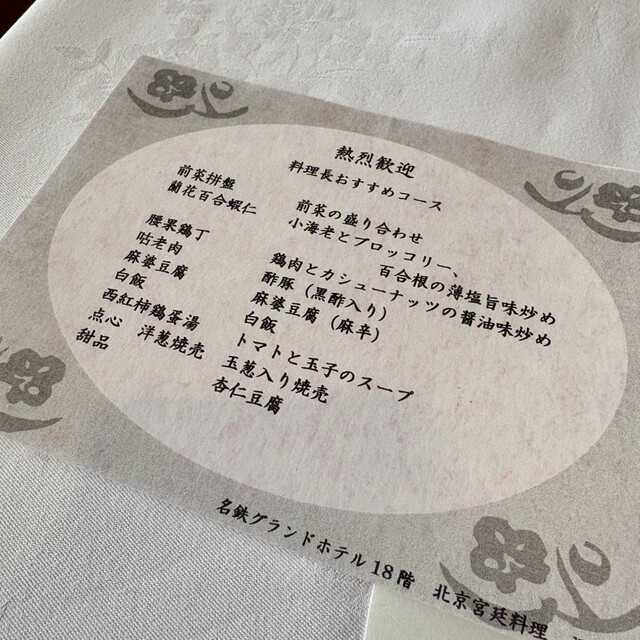 熱烈歓迎
料理長おすすめコース
前菜拼盤 前菜の盛り合わせ
蘭花百合蝦仁 小海老とブロッコリー、
百合根の薄塩旨味炒め
腰果鶏丁 鶏肉とカシューナッツの醤油味炒め
咕老肉 酢豚（黒酢入り）
麻婆豆腐 麻婆豆腐（麻辛）
白飯 白飯
西紅柿鶏蛋湯 トマトと玉子のスープ
点心 洋葱焼売 玉葱入り焼売
甜品 杏仁豆腐
名鉄グランドホテル18階 北京宮廷料理